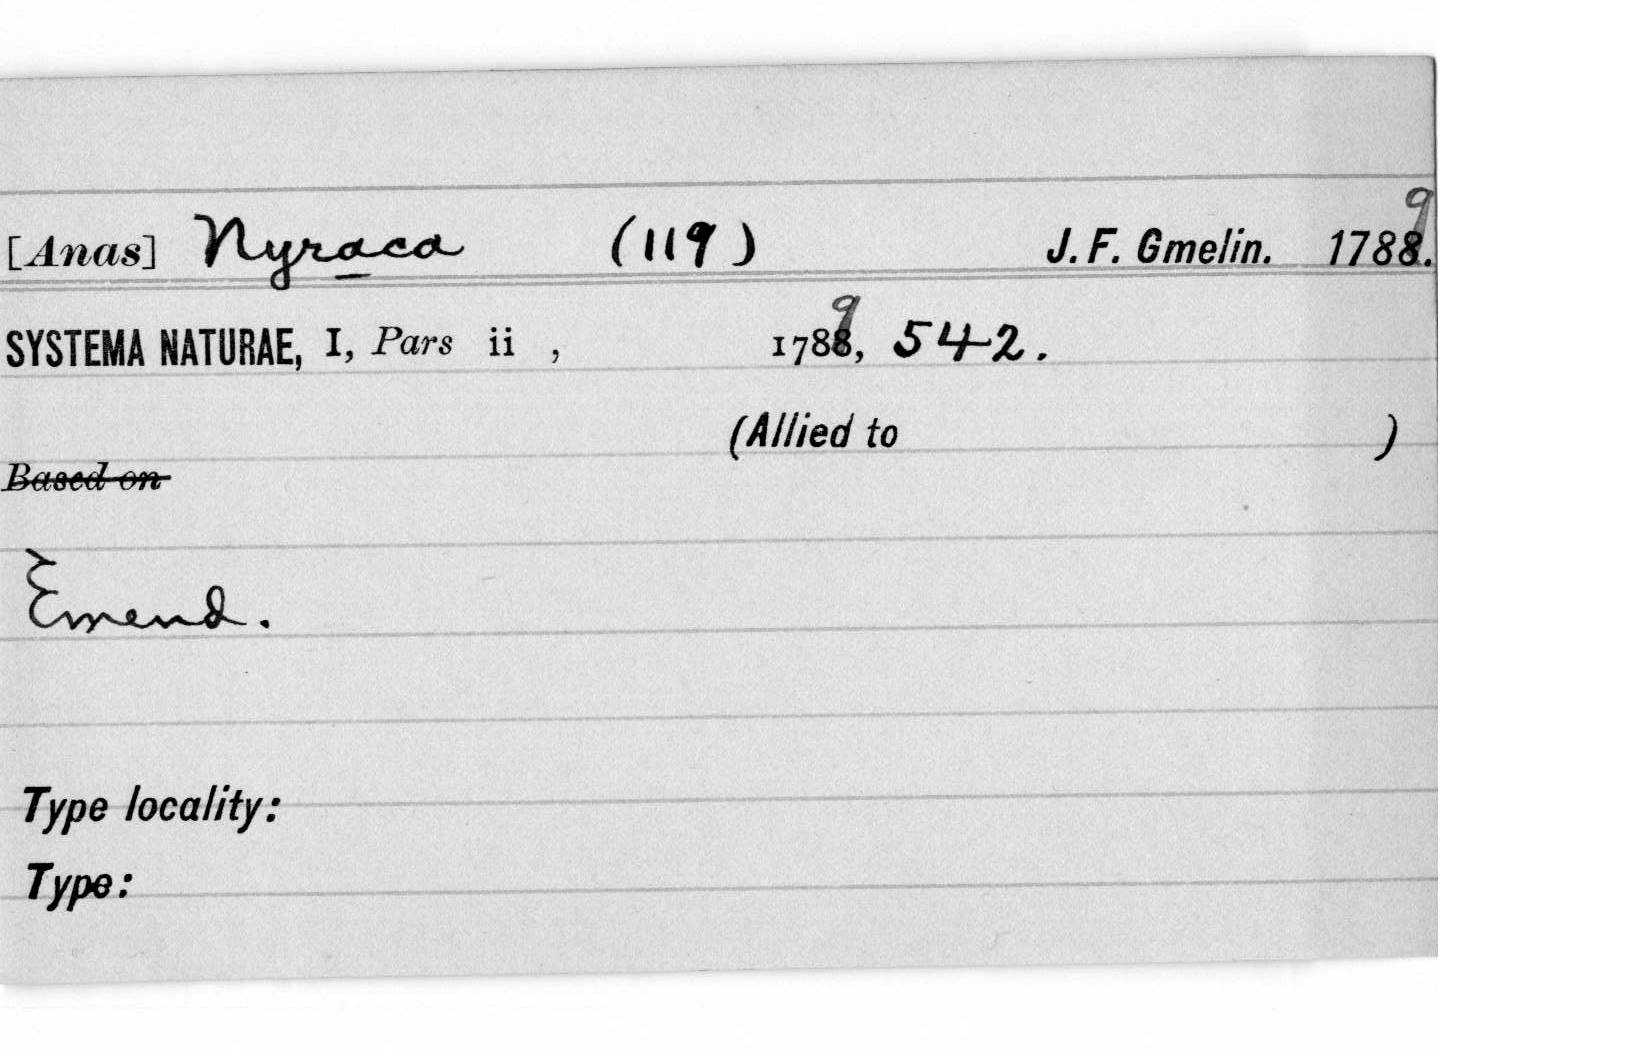 [Anas] Nyraca (119) J. F. Gmelin. 1789.
SYSTEMA NATURAE, I, Pars ii , 1789, 542.
(Allied to )
Based on
Emend.
Type locality:
Type: